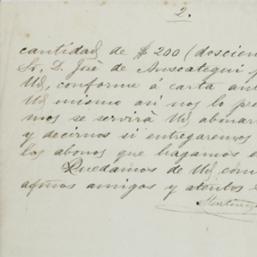 2.
cantidad de $ 200 (doscien
Sr. D. José de Anscategui
Ud, conforme á carta ant
Ud mismo asi nos lo pre
mos se servirá Ud abonar
y decirnos si entregaremos
los abonos que hagamos
Quedamos de Ud, com
afmos amigos y atentos